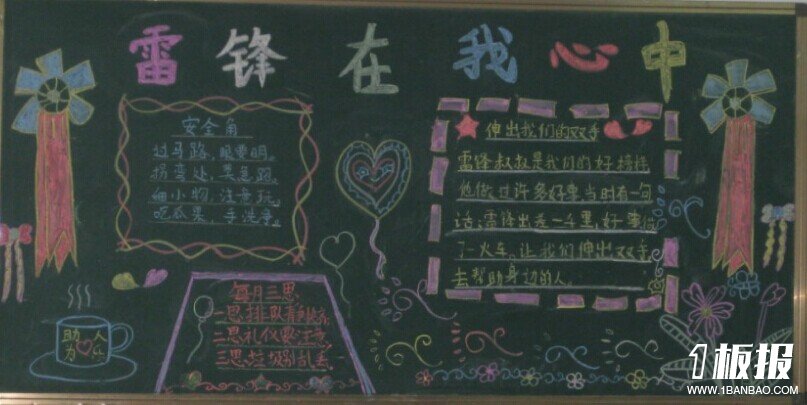 雷锋在我心中
安全角
过马路,眼要明。
拐弯处,莫急跑。
细小物,注意玩。
吃瓜果,手洗净。
伸出我们的双手
雷锋叔叔是我们的好榜样
他做过许多好事,当时有一句
话:雷锋出差一千里,好事做
了一火车。让我们伸出双手
去帮助身边的人。
每月三思
一思排队有
二思礼仪要注意
三思垃圾别乱丢
助人
为
1板报
WWW.1BANBAO.COM